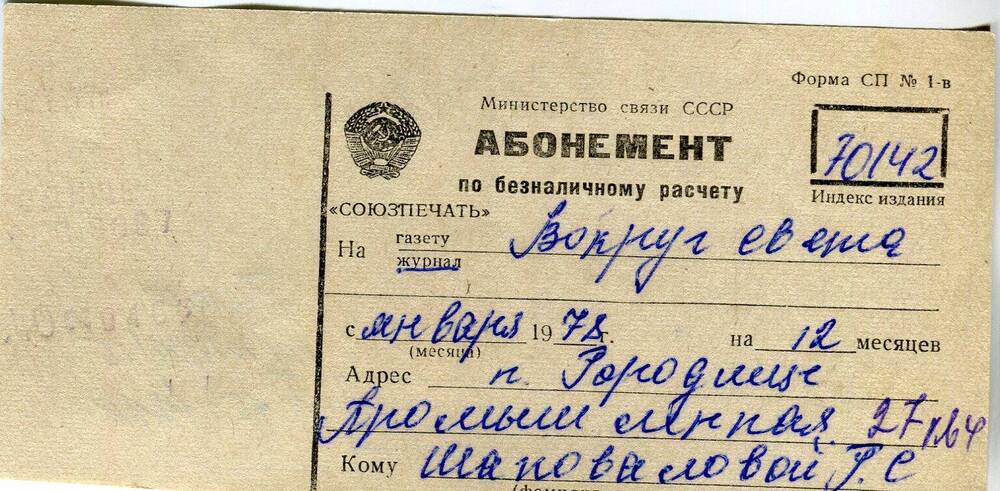 Форма СП № 1-в
Министерство связи СССР
АБОНЕМЕНТ
70142
по безналичному расчету
Индекс издания
«СОЮЗПЕЧАТЬ»
На газету
журнал
Вокруг света
с января 1978 г. на 12 месяцев
(месяца)
Адрес п.
Промышленная 27
Кому Шаповаловой Г. С